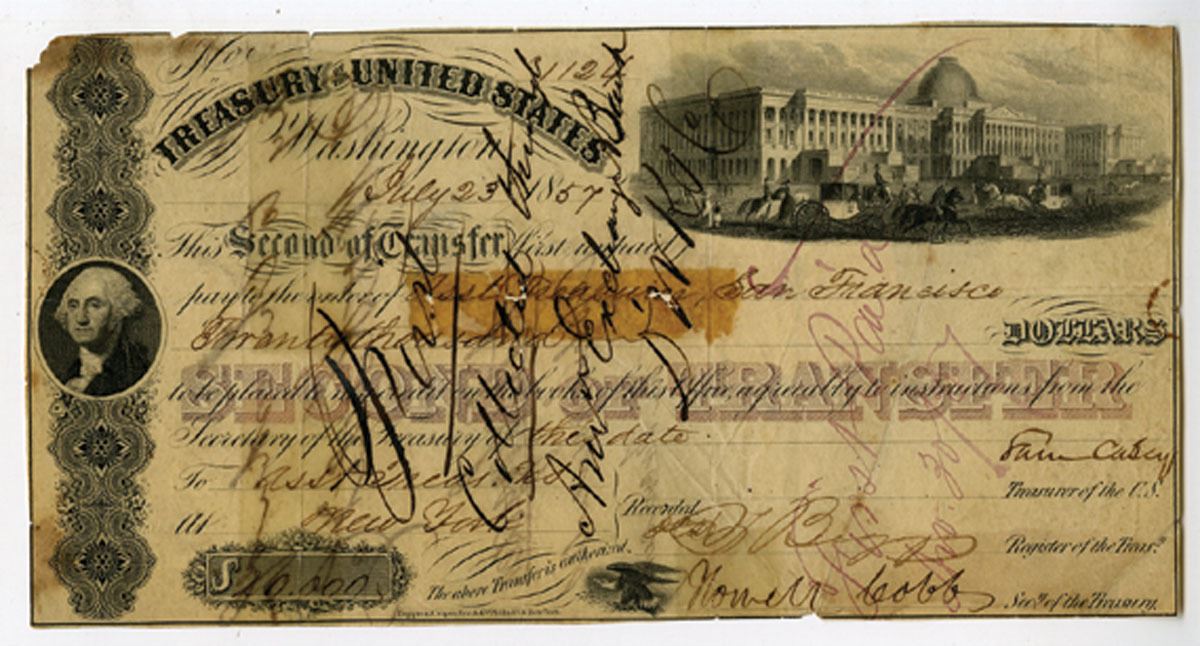 No.
TREASURY OF THE UNITED STATES
Washington
July 23 1857
This Second of Transfer, first unpaid
pay to the order of Asst. Treasurer, San Francisco
Twenty thousand DOLLARS
SECOND OF TRANSFER
to be placed to my credit on the books of this Office, agreeably to instructions from the
Secretary of the Treasury of this date.
Sam Casey
To Asst Treas. US Treasurer of the U.S.
At New York Recorded
Register of the Treasy.
$20.000 The above Transfer is authorized.
Howell Cobb Secy. of the Treasury.
Third
American Exchange Bank
First Paid